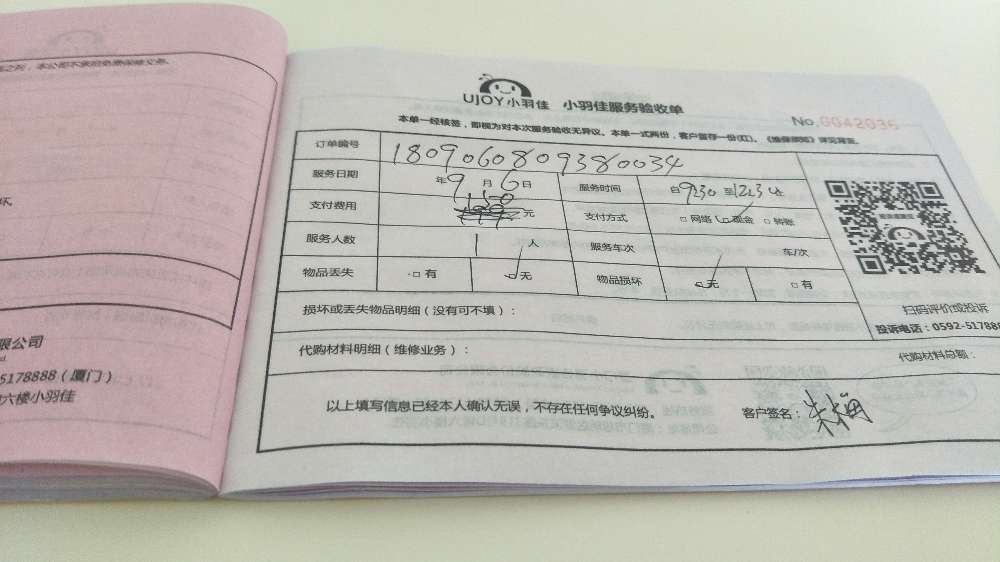 本公司不承担免费保修义务。
坏,
限公司
5178888（厦门）
六楼小羽佳
UJOY小羽佳 小羽佳服务验收单
No.0042036
本单一经核签，即视为对本次服务验收无异议。本单一式两份，客户留存一份(红)。《维保须知》详见背面。
订单编号 180906080938 0034
服务日期 年9月6日 服务时间 自9:30至12:30
支付费用 150元 支付方式 □网络 □现金 □转账
服务人数 1人 服务车次 车/次
物品丢失 □有 □无 物品损坏 □无 □有
损坏或丢失物品明细（没有可不填）：
扫码评价或投诉
投诉电话：0592-517888
代购材料明细（维修业务）： 代购材料总额：
以上填写信息已经本人确认无误，不存在任何争议纠纷。 客户签名：朱梅